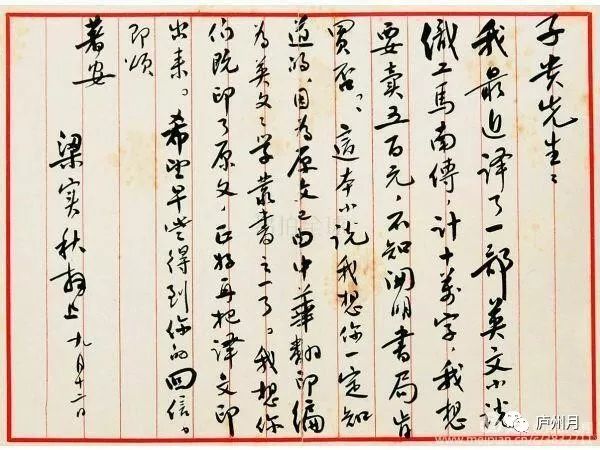 子贵先生：
我最近译了一部英文小说
織工馬南傳，计十萬字，我想
要卖五百元，不知開明書局肯
買否？這本小说我想你一定知
道的，因为原文已由中華翻印编
为英文文学叢書之一了。我想你
们既印了原文，正好再把译文印
出来。希望早些得到你的回信。
即颂
著安
梁实秋拜上 九月十二日
庐州月